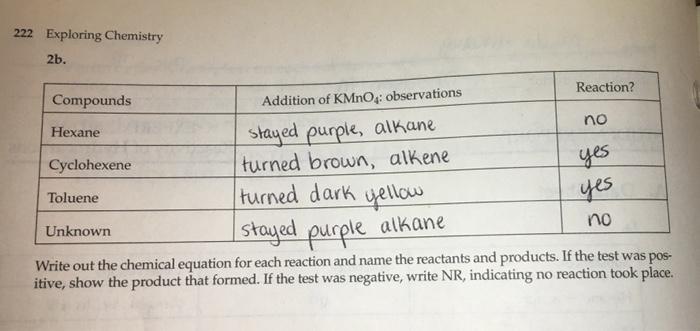 222 Exploring Chemistry
2b.
Compounds Addition of KMnO₄: observations Reaction?
Hexane stayed purple, alkane no
Cyclohexene turned brown, alkene yes
Toluene turned dark yellow yes
Unknown stayed purple alkane no
Write out the chemical equation for each reaction and name the reactants and products. If the test was pos-
itive, show the product that formed. If the test was negative, write NR, indicating no reaction took place.